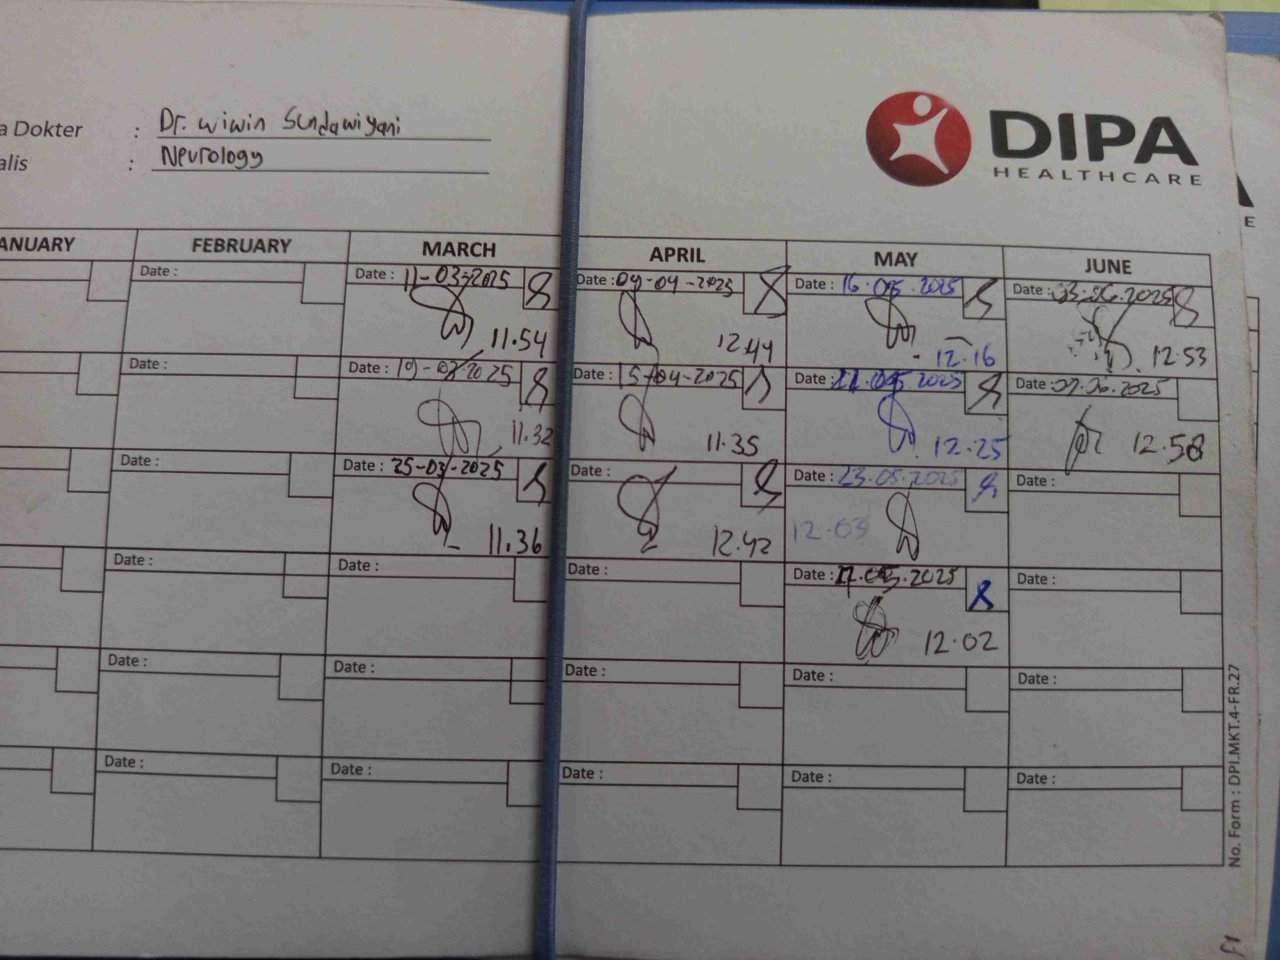 a Dokter : Dr. wiwin Sundawiyani
alis : Neurology
DIPA
HEALTHCARE
A
E
ANUARY FEBRUARY MARCH APRIL MAY JUNE
Date : Date : 11-03-2025 Date : 09-04-2025 Date : 16.05.2025 Date : 03.06.2025
11.54 12.44 12.16 12.53
Date : Date : 19-03-2025 Date : 15-04-2025 Date : 05.2025 Date : 06.2025
11.32 11.35 12.25 12.58
Date : Date : 25-03-2025 Date : Date : 23.05.2025 Date :
11.36 12.42 12.03
Date : Date : Date : Date : 05.2025 Date :
12.02
Date : Date : Date : Date : Date :
Date : Date : Date : Date : Date :
No. Form : DPI.MKT.4-FR.27